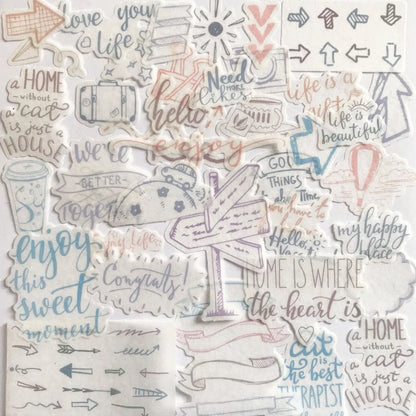 love you
life
Need
MORE
likes
hello
life is a
gift
life is
beautiful
a HOME
without
a cat
is just a
HOUSE
we're
BETTER
Together
enjoy
GOOD
THINGS
and
Time
you have to
Hello,
my happy
place
enjoy
this
sweet
moment
my life
Congrats
HOME IS WHERE
the heart is
cat
is
the best
THERAPIST
a HOME
without
a cat
is just a
HOUSE